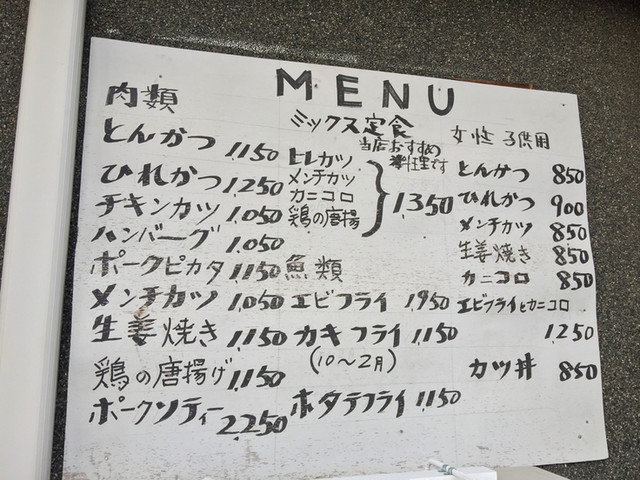 MENU
肉類
とんかつ 1,150
ひれかつ 1,250
チキンカツ 1,050
ハンバーグ 1,050
ポークピカタ 1,150
メンチカツ 1,050
生姜焼き 1,150
鶏の唐揚げ 1,150
ポークソテー 2,250
ミックス定食
当店おすすめ
料理です
ヒレカツ
メンチカツ
カニコロ
鶏の唐揚
1,350
魚類
エビフライ 1,950
カキフライ 1,150
(10〜2月)
ホタテフライ 1,150
女性 子供用
とんかつ 850
ひれかつ 900
メンチカツ 850
生姜焼き 850
カニコロ 850
エビフライとカニコロ
1,250
カツ丼 850